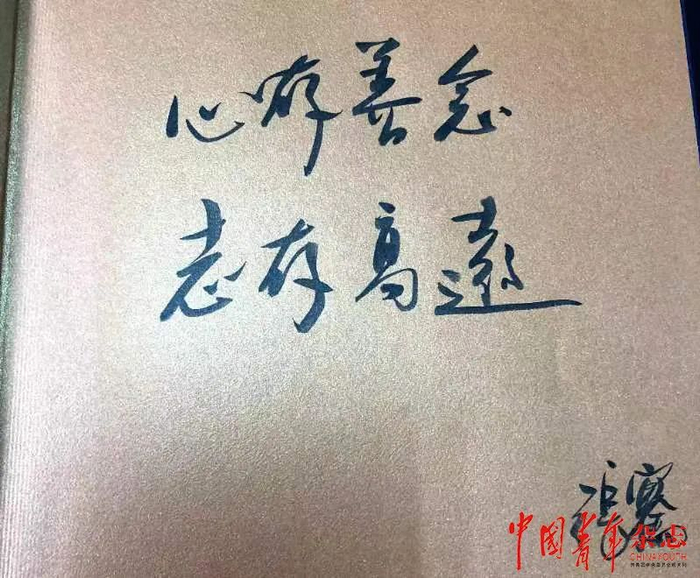 心存善念
志存高遠
中国青年杂志
CHINA YOUTH